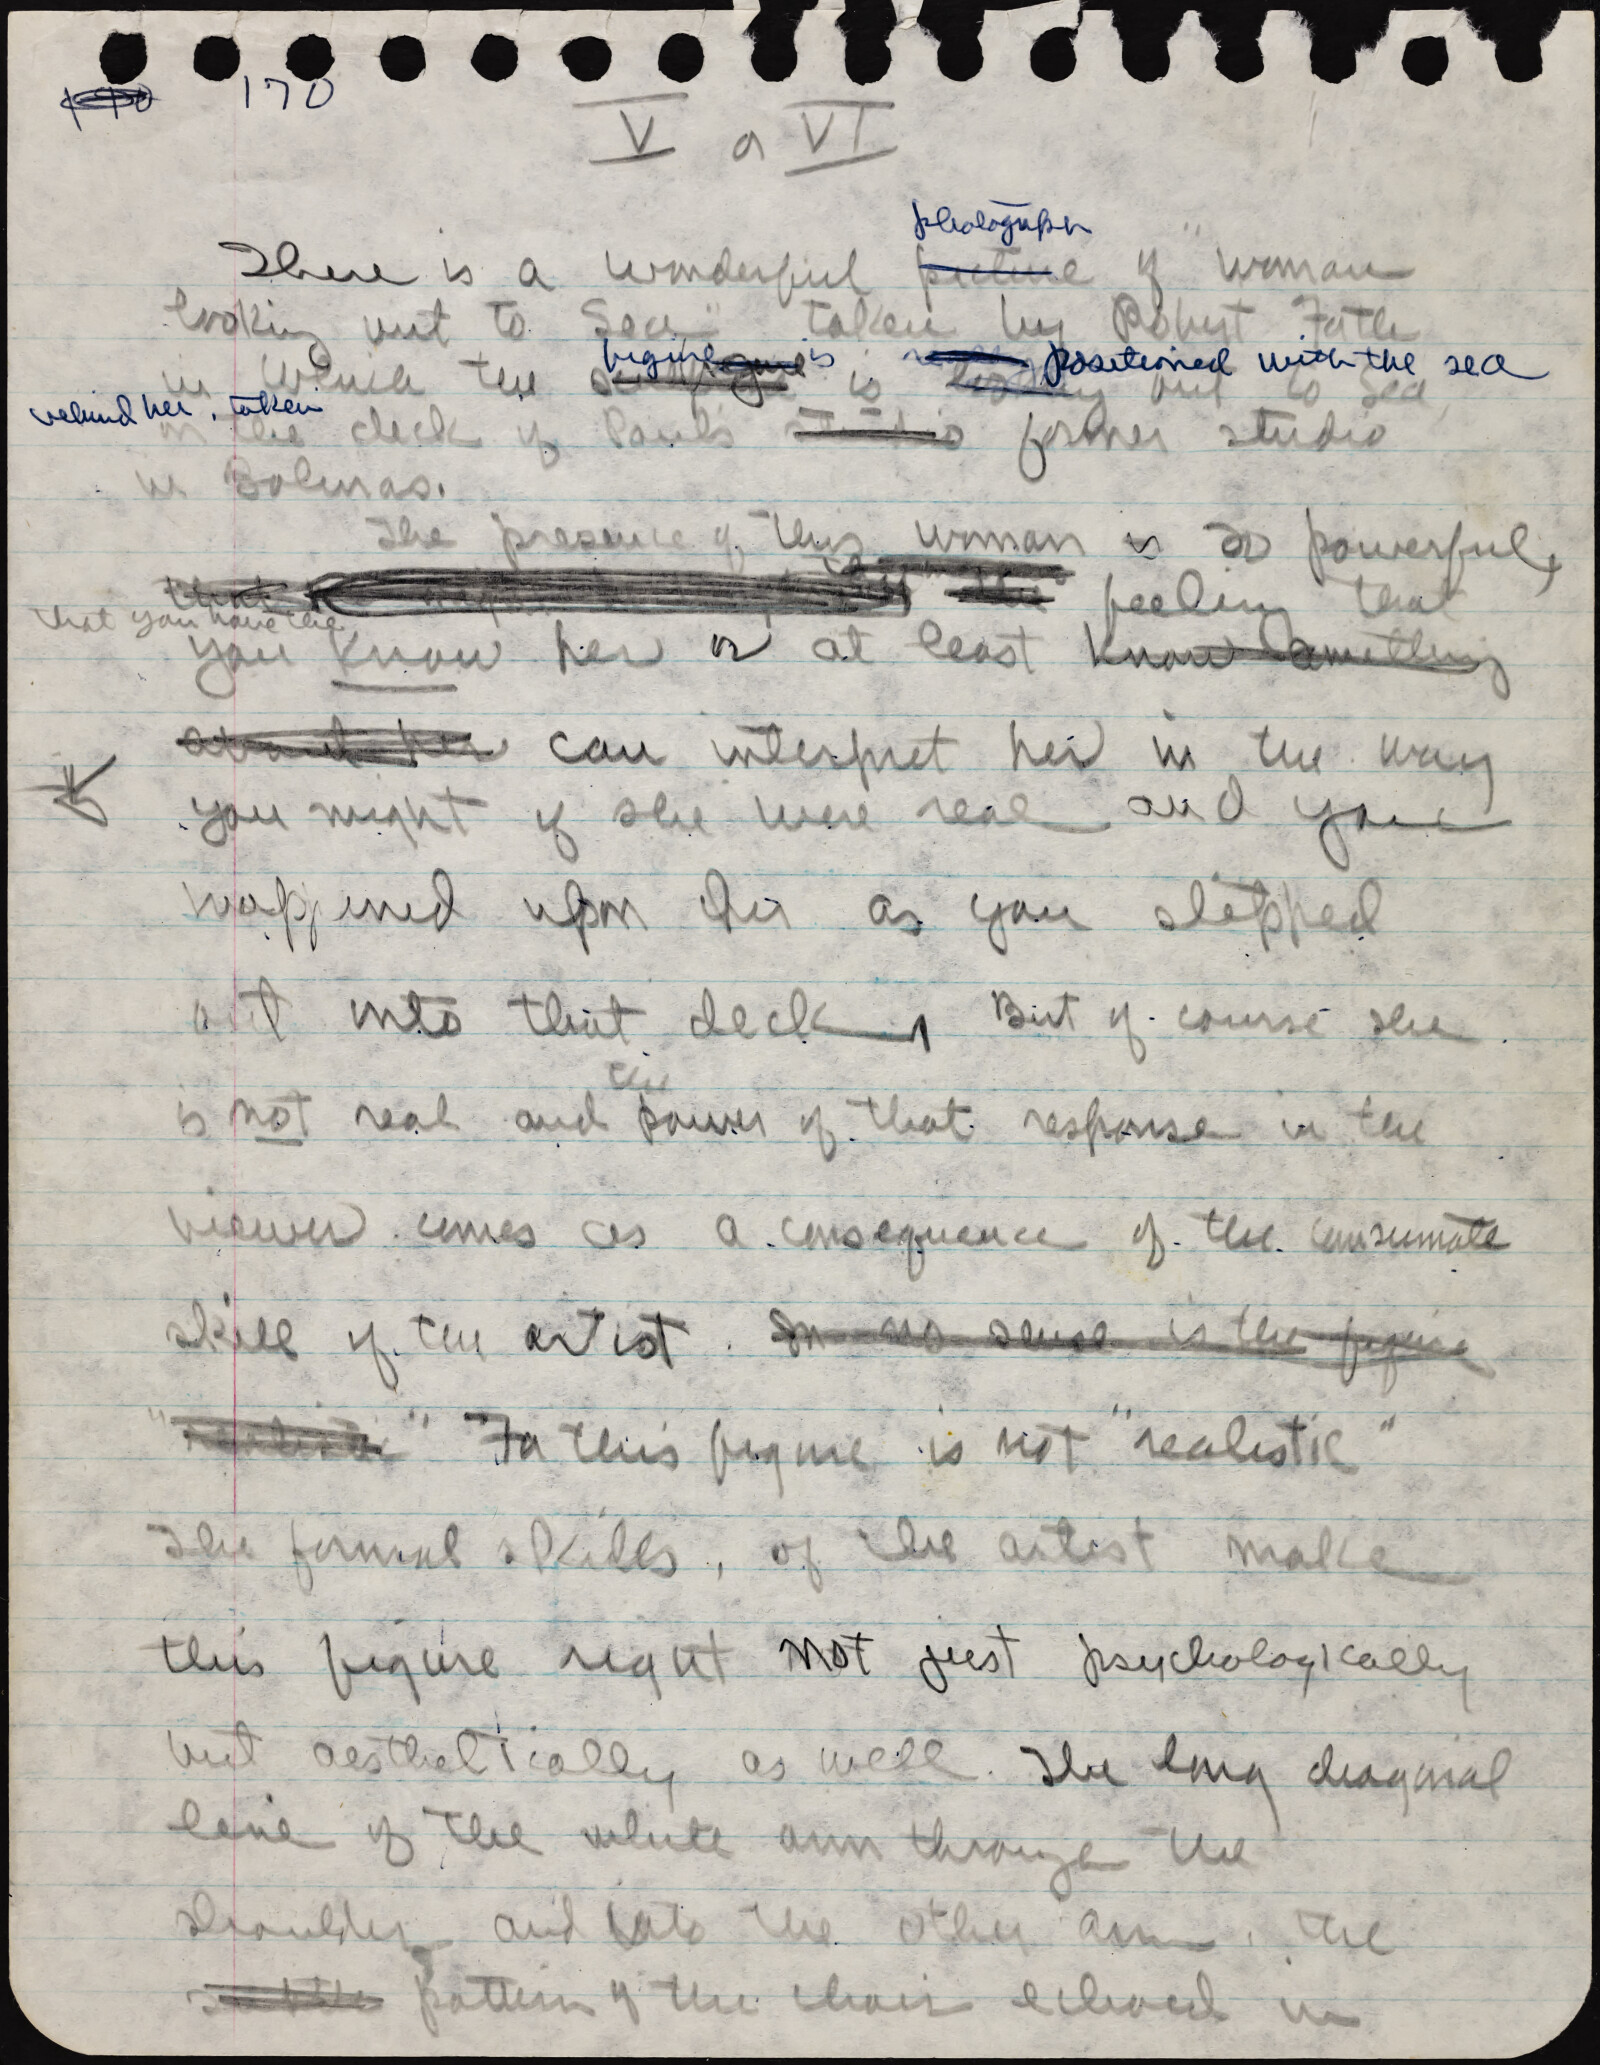 170
V or VI
photograph
There is a wonderful picture of "Woman
looking out to Sea" taken by Robert
figure is positioned with the sea
in which the is looking out to Sea,
behind her, taken
on the deck of Paul's studio former studio
in Bolinas.
The presence of this woman is so powerful,
that the feeling that
that you have the
you know her or at least know something
about her can interpret her in the way
you might if she were real and you
happened upon her as you stepped
out into that deck, But of course she
the
is not real and power of that response in the
viewer comes as a consequence of the consumate
skill of the artist. In no sense is the figure
"realistic" For this figure is not "realistic"
The formal skills, of the artist make
this figure right not just psychologically
but aesthetically as well. The long diagonal
line of the white arm through the
shoulder and into the other arm, the
pattern of the chair echoed in